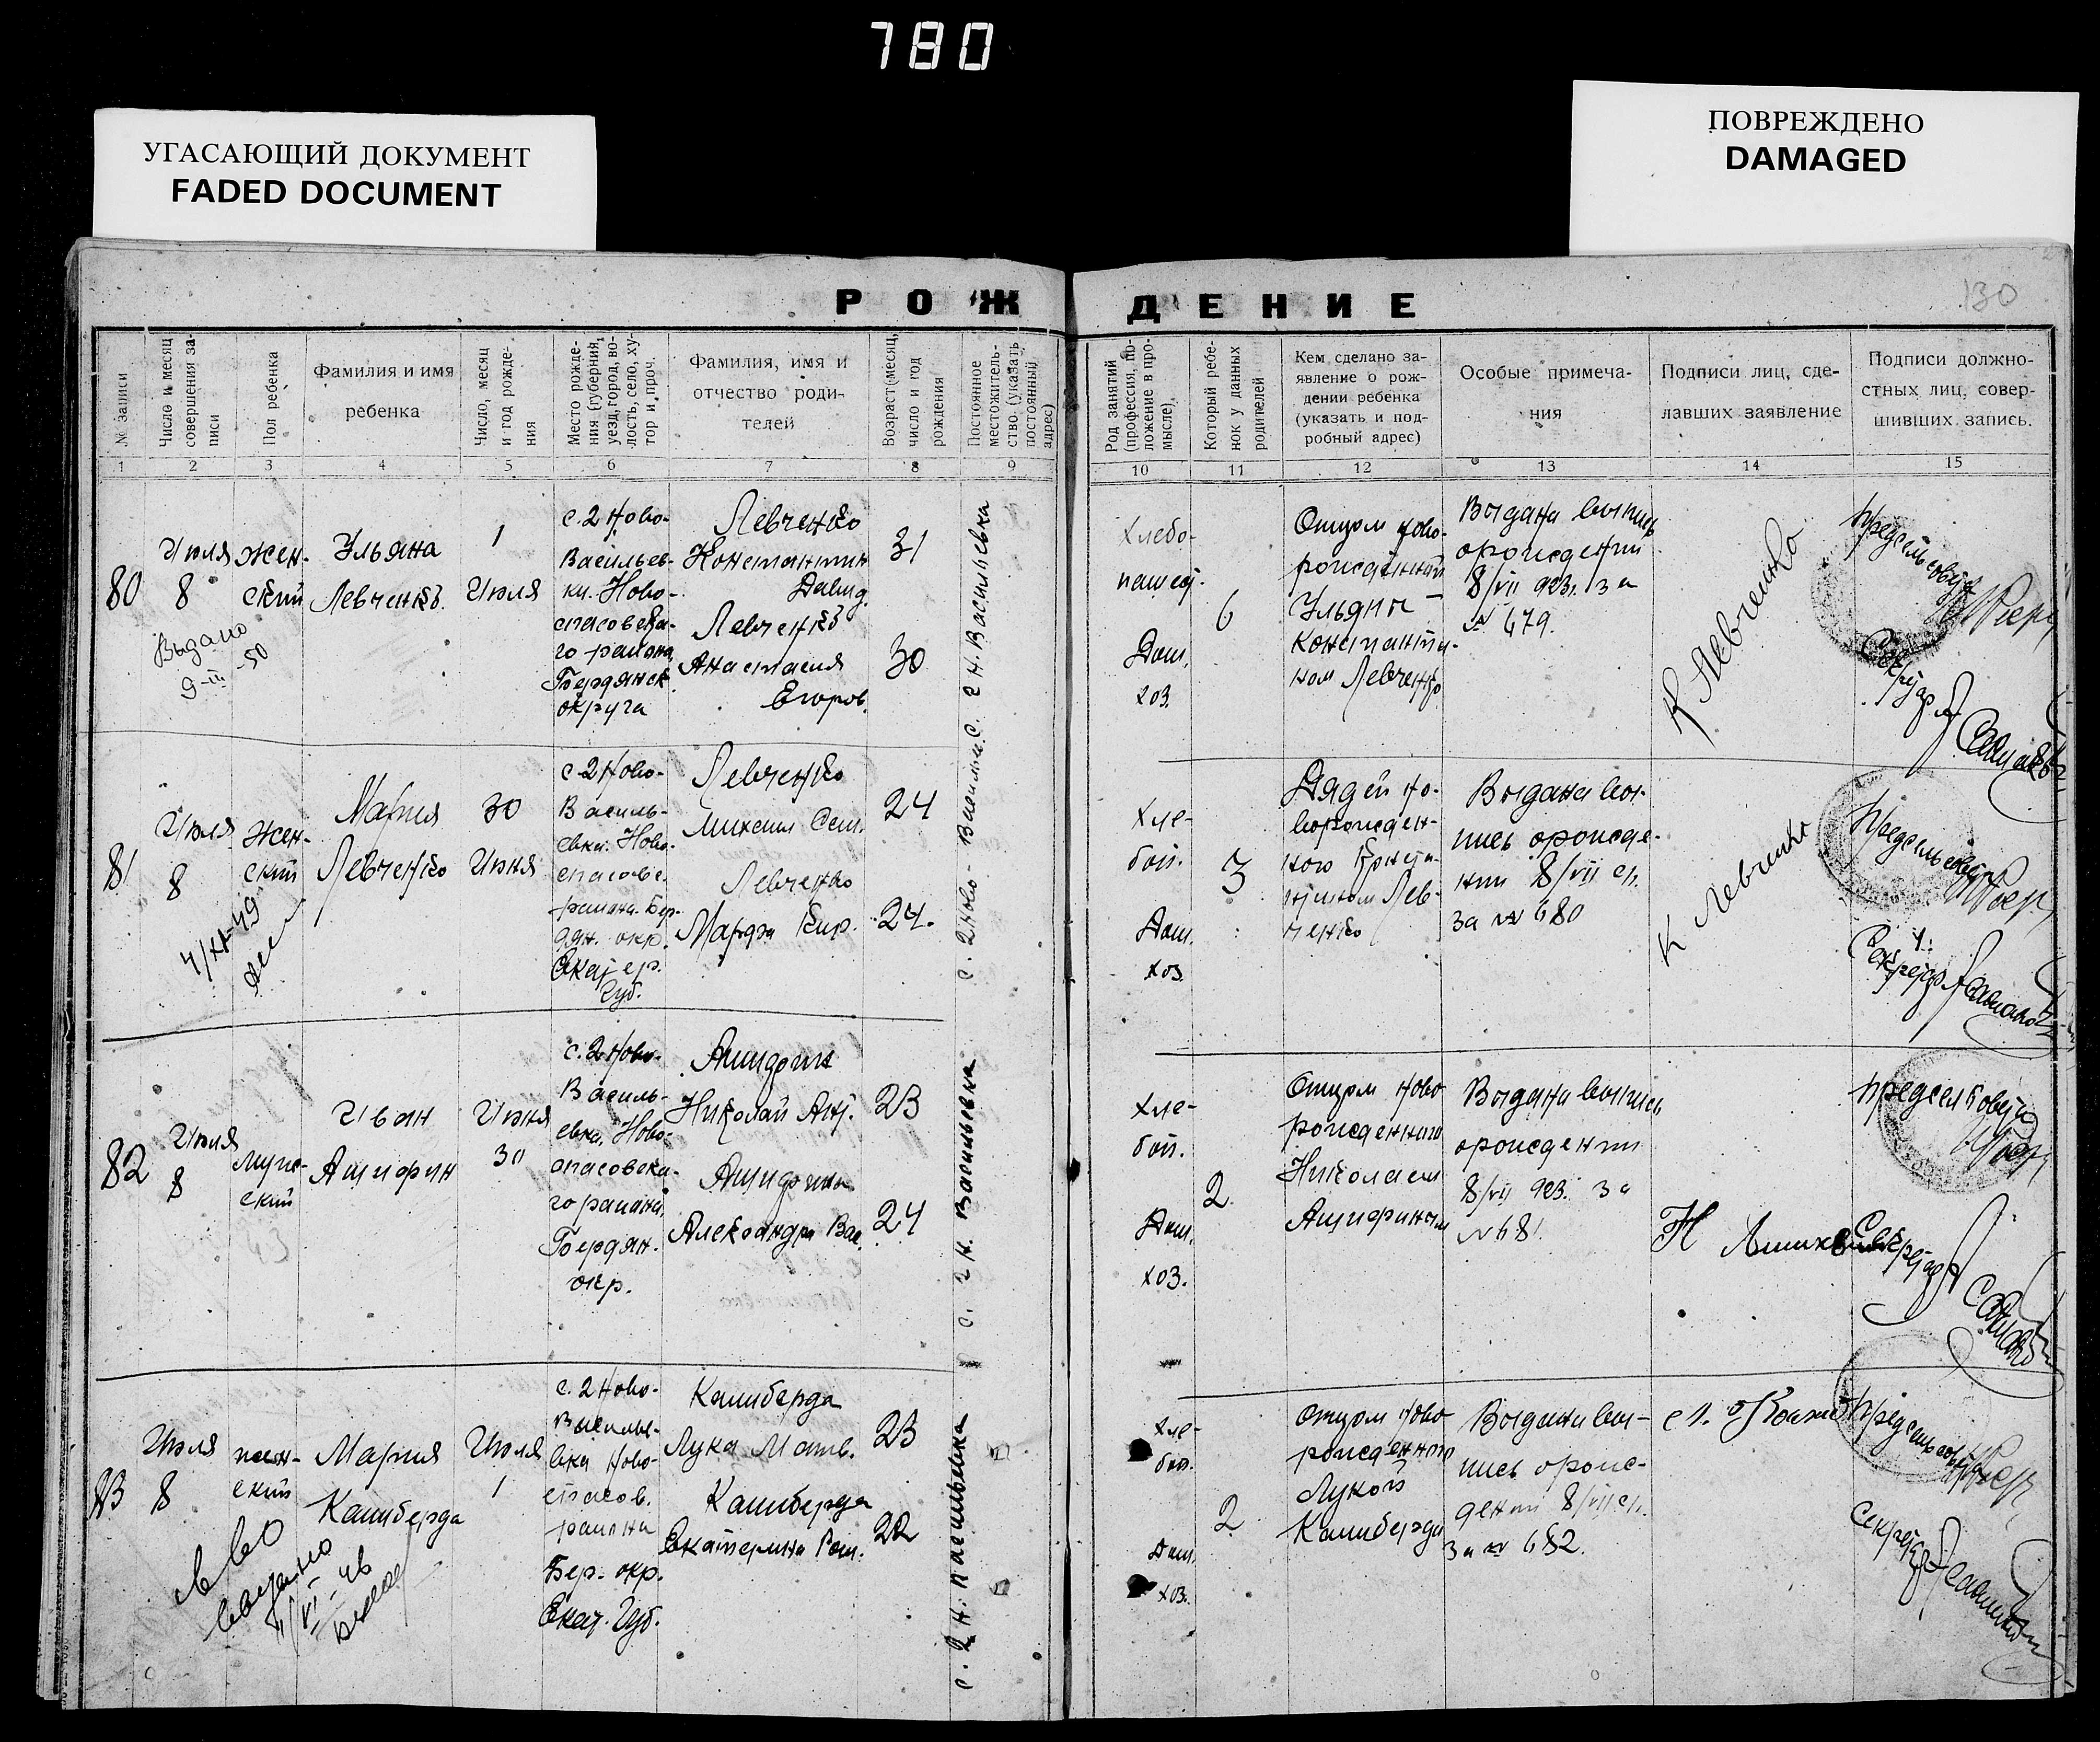 780
УГАСАЮЩИЙ ДОКУМЕНТ
FADED DOCUMENT
ПОВРЕЖДЕНО
DAMAGED
130
РОЖДЕНИЕ
№ записи
Число и месяц совершения записи
Пол ребенка
Фамилия и имя
ребенка
Число, месяц и год рождения
Место рождения (губерния, уезд, город, волость, село, хутор и проч.
Фамилия, имя и
отчество роди-
телей
Возраст (месяц, число и год рождения
Постоянное местожительство (указать постоянный адрес)
Род занятий (профессия, положение в промысле)
Который ребенок у данных родителей
Кем сделано за-
явление о рож-
дении ребенка
(указать и под-
робный адрес)
Особые примеча-
ния
Подписи лиц, сде-
лавших заявление
Подписи должно-
стных лиц, совер-
шивших запись.
1 2 3 4 5 6 7 8 9 10 11 12 13 14 15
80
Июля
8
Выдано
9-III-50
Жен-
ский
Ульяна
Левченко
1
Июля
с. 2 Ново-
Васильев-
ки. Ново-
спасовска-
го района
Бердянск.
округа
Левченко
Константин
Давид.
Левченко
Анастасия
Егоров.
31
30
с. 2 Н. Васильевка
Хлебо-
пашец.
Дом.
хоз.
6
Отцом ново-
рожденной
Ульяны
Константи-
ном Левченко
Выдана выпись
о рождении
8/VII 923г. за
№ 679.
К Левченко
Предсельсовета
Секретарь
81
Июля
8
Жен-
ский
4/XI-49
Мария
Левченко
30
Июня
с. 2 Ново-
Василь-
евка. Ново-
спасовс.
района. Бер-
дян. окр.
Екатер.
Губ.
Левченко
Михаил Сем.
Левченко
Марфа Кир.
24
24.
с. 2 Ново-Васильев.
Хле-
боп.
Дом.
хоз
3
Дядей но-
ворожден-
ного Конста-
нтином Лев-
ченко
Выдана вы-
пись о рожде-
нии 8/VII с/г.
за № 680
К Левченко
Предсельсовета
Секретарь
82
Июля
8
Муж-
ский
Иван
Ашифин
Июня
30
с. 2 Ново-
Василь-
евка, Ново-
спасовска-
го района.
Бердян.
окр.
Николай Ант.
Александра Вас.
23
24
с. 2 Н. Васильевка
Хле-
боп.
Дом.
хоз.
2
Отцом ново
рожденного
Николаем
Ашифиным
Выдана выпись
о рождении
8/VII 923. за
№ 681.
Н
Предсельсовета
Секретарь
83
Июля
8
жен-
ский
выдано
11/VI-46
Мария
Кашберда
Июля
1
с. 2 Ново-
Василье-
вка Ново-
спасов.
района
Бер. окр.
Екат. Губ.
Кашберда
Лука Матв.
Кашберда
Екатерина Ром.
23
22
с. 2 Н. Васильевка
Хле-
боп.
Дом.
хоз.
2
Отцом ново
рожденного
Лукой
Кашберда
Выдана вы-
пись о рож-
дении 8/VII с/г.
за № 682.
Предсельсовета
Секретарь